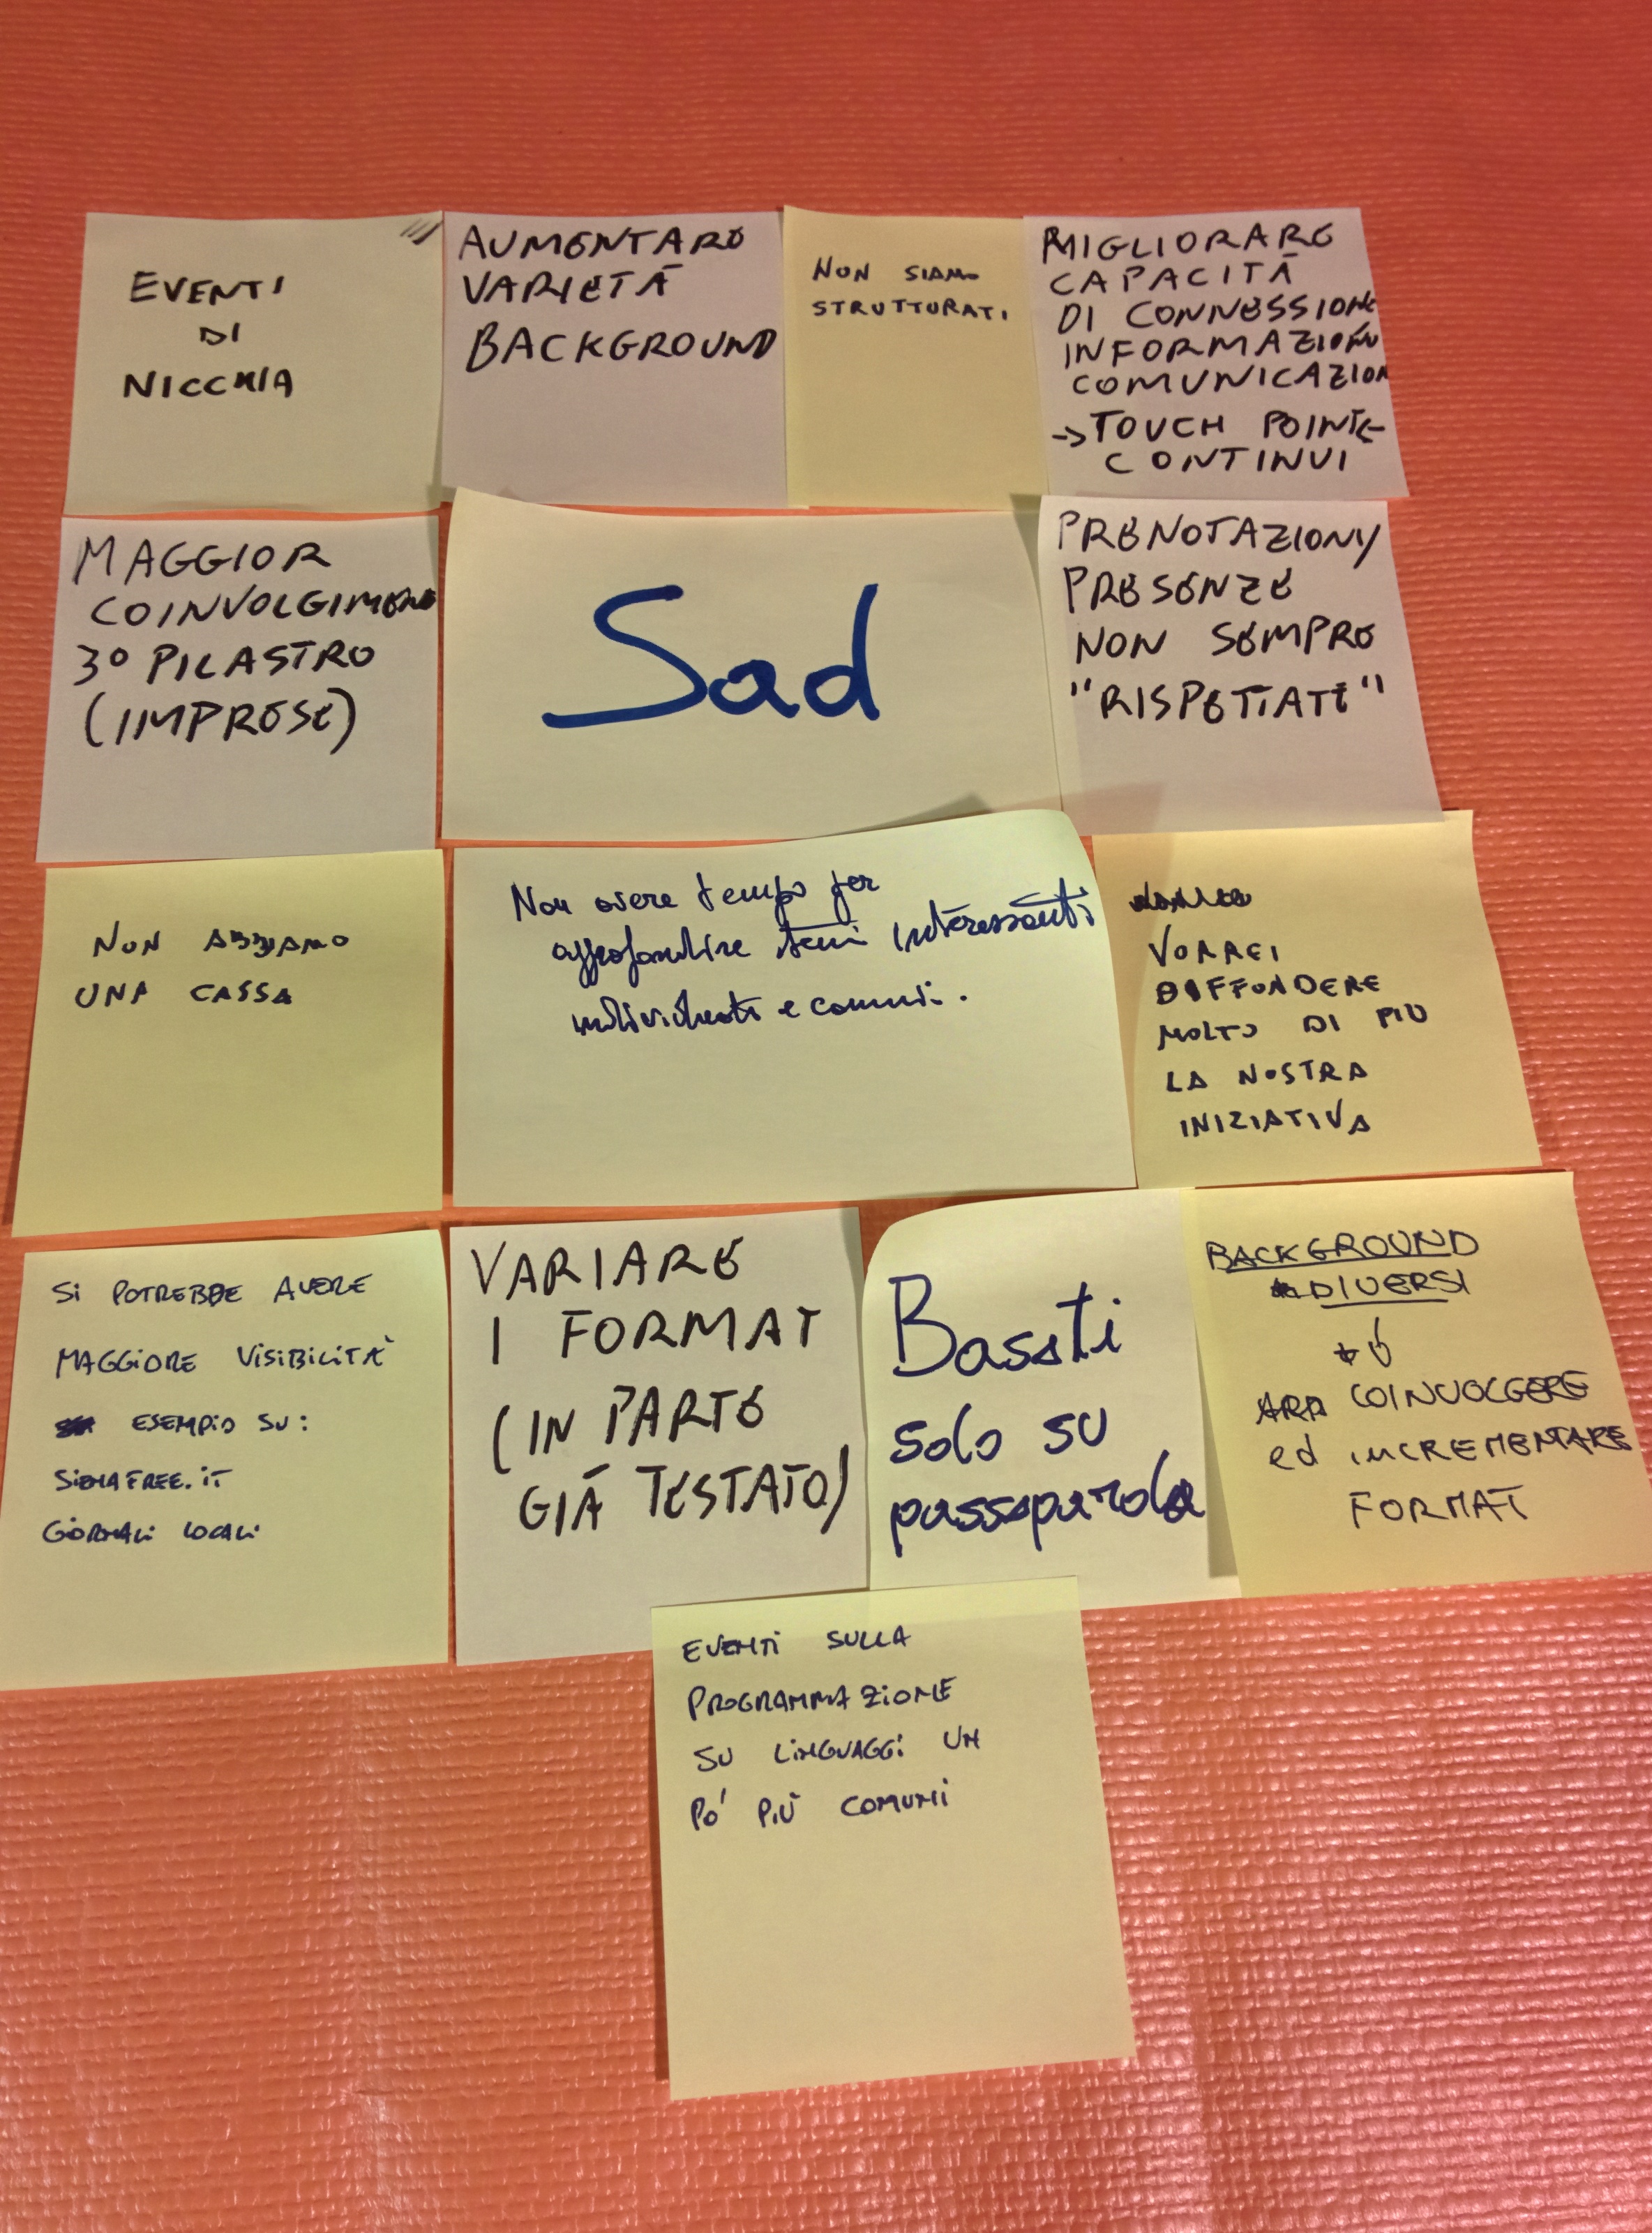 EVENTI
DI
NICCHIA
AUMENTARE
VARIETÁ
BACKGROUND
NON SIAMO
STRUTTURATI
MIGLIORARE
CAPACITÁ
DI CONNESSIONE
INFORMAZIONE
COMUNICAZION
→ TOUCH POINT
CONTINUI
MAGGIOR
COINVOLGIMENTO
3° PILASTRO
(IMPRESE)
Sad
PRENOTAZIONI/
PRESENZE
NON SEMPRE
"RISPETTATE"
NON ABBIAMO
UNA CASSA
Non avere tempo per
approfondire temi interessanti
individuati e comuni.
VORREI
DIFFONDERE
MOLTO DI PIÙ
LA NOSTRA
INIZIATIVA
Si POTREBBE AVERE
MAGGIORE VISIBILITÀ
ESEMPIO SU:
SIENAFREE.IT
GIORNALI LOCALI
VARIARE
I FORMAT
(IN PARTE
GIÁ TESTATO)
Basati
solo su
passaparola
BACKGROUND
DIVERSI
COINVOLGERE
ed INCREMENTARE
FORMAT
EVENTI SULLA
PROGRAMMAZIONE
SU LINGUAGGI UN
PO' PIÙ COMUNI